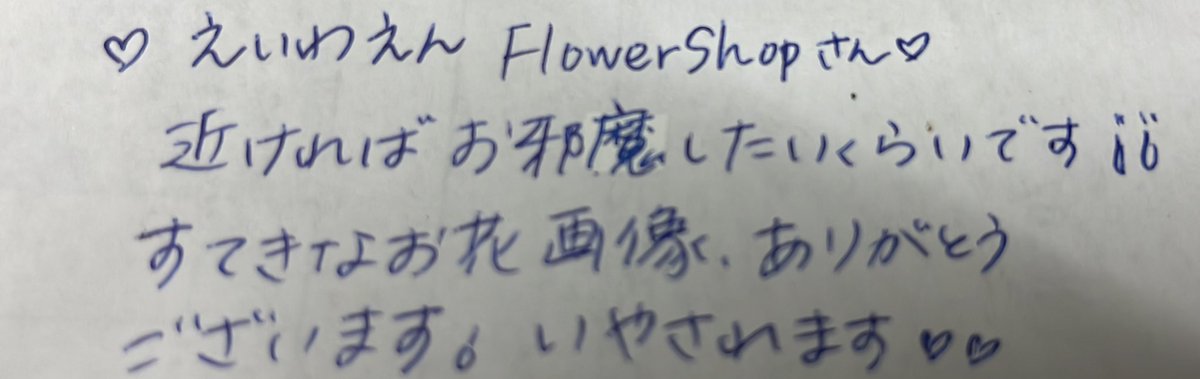 ♡ えいわえん FlowerShopさん♡
近ければお邪魔したいくらいです!!
すてきなお花画像、ありがとう
ございます。いやされます♡♡